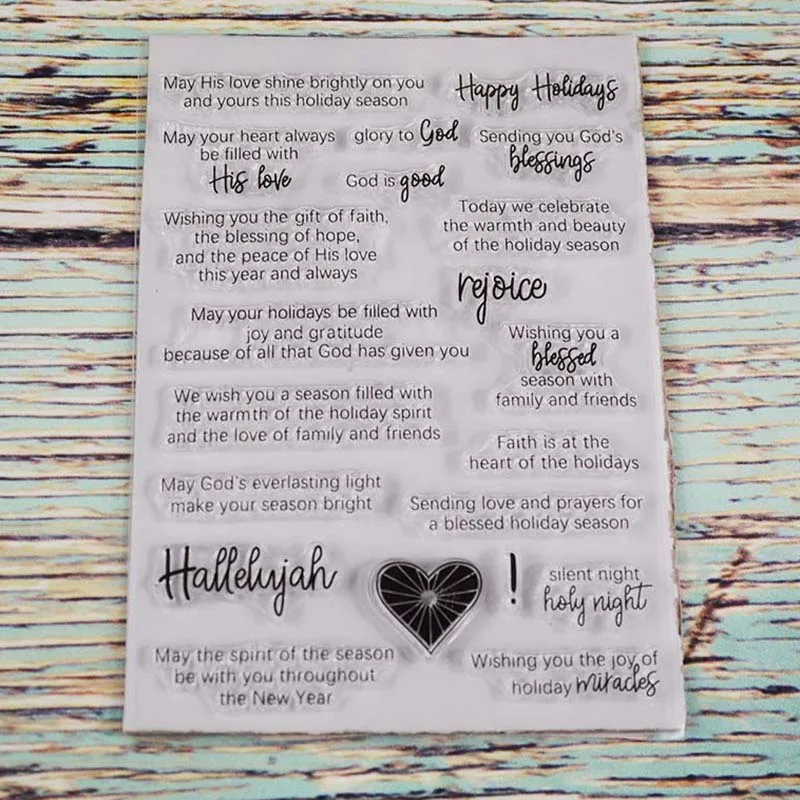 May His love shine brightly on you
and yours this holiday season
Happy Holidays
May your heart always
be filled with
His love
glory to God
God is good
Sending you God's
blessings
Wishing you the gift of faith,
the blessing of hope,
and the peace of His love
this year and always
Today we celebrate
the warmth and beauty
of the holiday season
rejoice
May your holidays be filled with
joy and gratitude
because of all that God has given you
Wishing you a
blessed
season with
family and friends
We wish you a season filled with
the warmth of the holiday spirit
and the love of family and friends
Faith is at the
heart of the holidays
May God's everlasting light
make your season bright
Sending love and prayers for
a blessed holiday season
Hallelujah
!
silent night
holy night
May the spirit of the season
be with you throughout
the New Year
Wishing you the joy of
holiday miracles